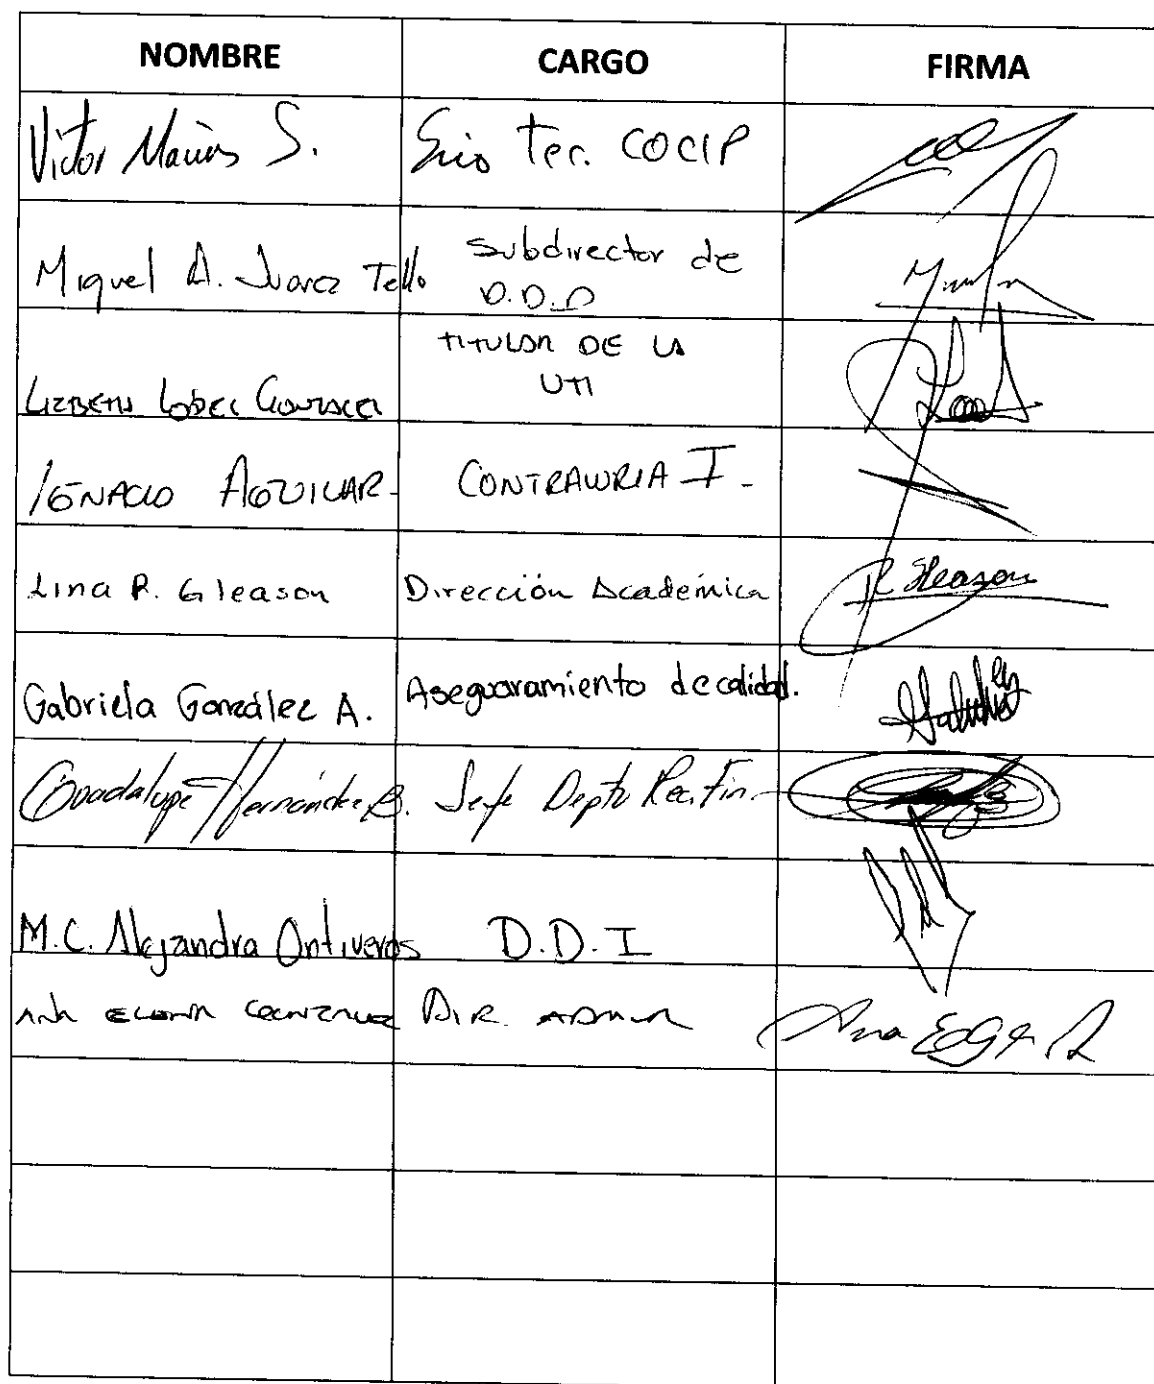 NOMBRE CARGO FIRMA
Victor Macias S. Srio Tec. COCIP
Miguel A. Juarez Tello Subdirector de
D.D.D
TITULAR DE LA
UTI
LIZBETH López González
IGNACIO AGUILAR CONTRALORIA I.
Lina R. Gleason Dirección Académica R Gleason
Gabriela González A. Aseguaramiento de calidad.
Guadalupe Hernández B. Jefe Depto Rec. Fin.
M.C. Alejandra Ontiveros D.D.I
ANA ELENA GONZALEZ DIR. ADMON